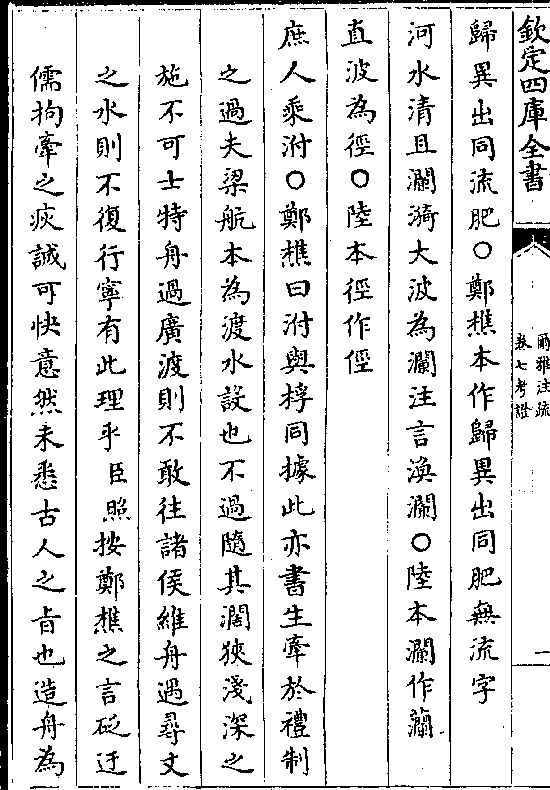 欽定四庫全書
爾雅注疏
卷七考證
一
歸異出同流肥○鄭樵本作歸異出同肥無流字
河水清且瀾漪大波為瀾注言渙瀾○陸本瀾作灡
直波為徑○陸本徑作俓
庶人乘泭○鄭樵曰泭與桴同據此亦書生牽於禮制
之過夫梁航本為渡水設也不過隨其濶狹淺深之
施不可士特舟過廣渡則不敢往諸侯維舟遇尋丈
之水則不復行寧有此理乎臣照按鄭樵之言砭迂
儒拘牽之疾誠可快意然未悉古人之旨也造舟為